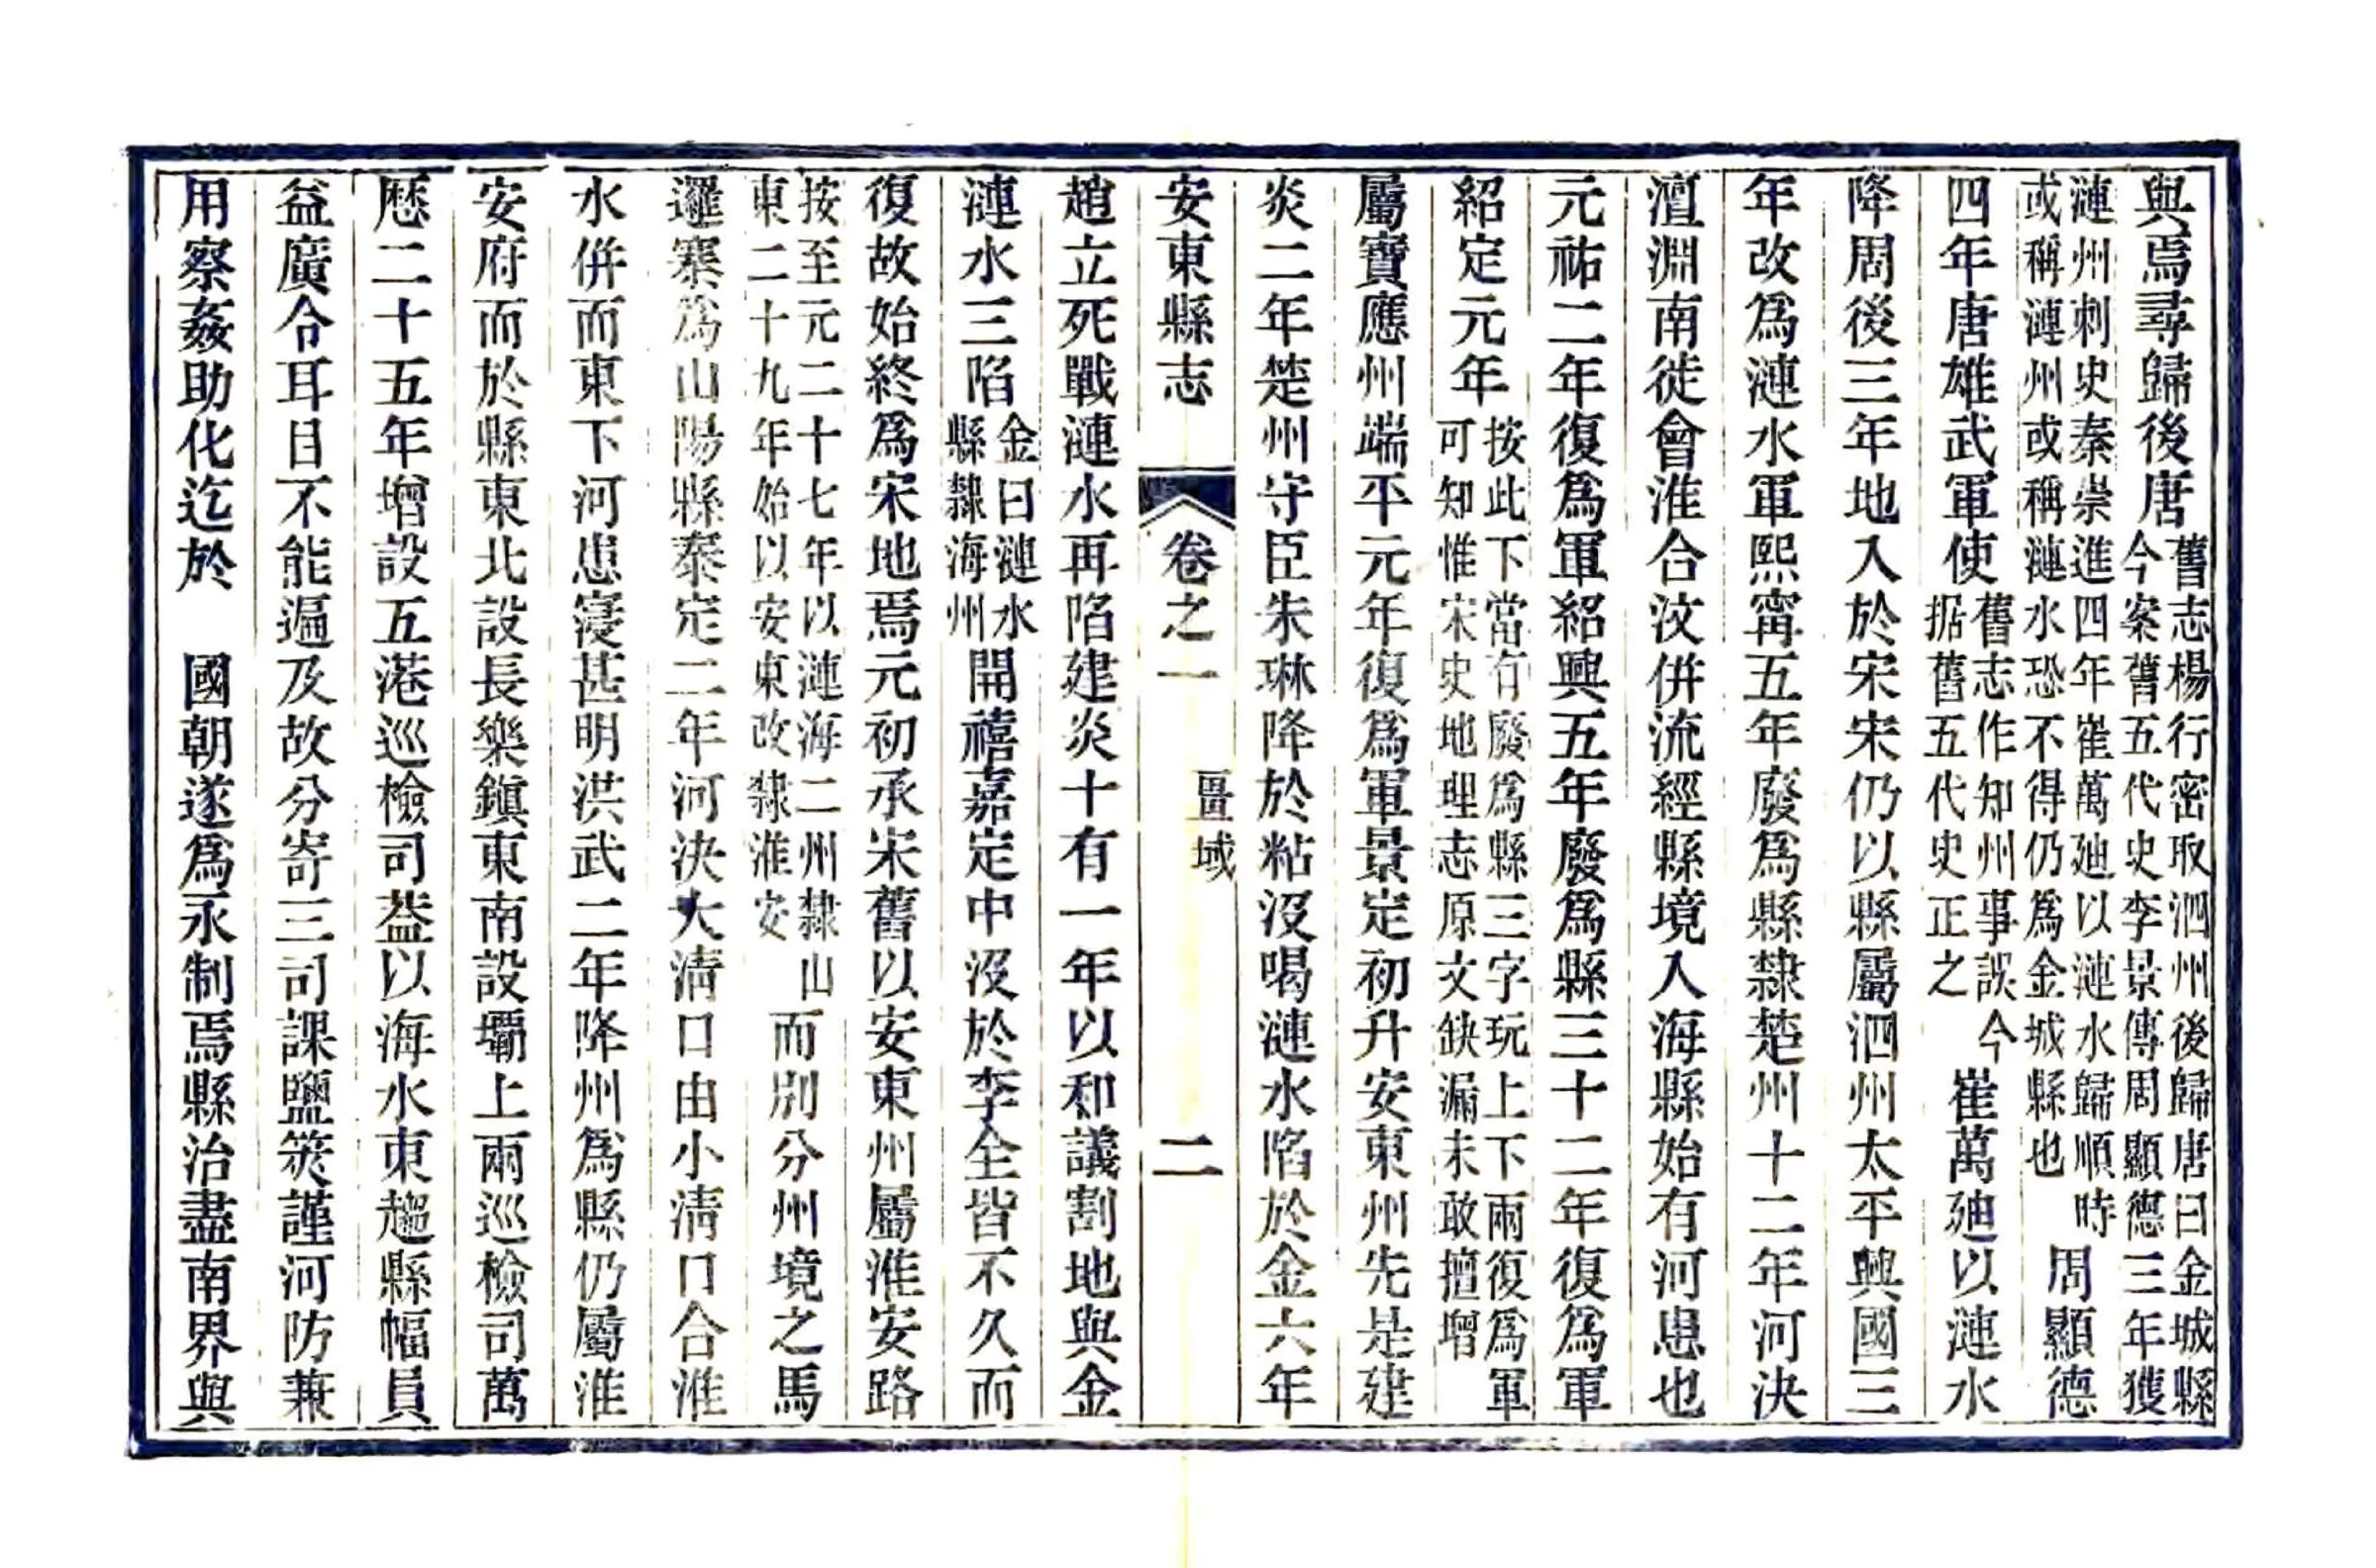 與焉尋歸後唐舊志楊行密取泗州後歸唐曰金城縣今案舊五代史李景傳周顯德三年獲
漣州刺史秦崇進四年崔萬廸以漣水歸順時或稱漣州或稱漣水恐不得仍為金城縣也周顯德
四年唐雄武軍使舊志作知州事誤今据舊五代史正之崔萬廸以漣水
降周後三年地入於宋宋仍以縣屬泗州太平興國三
年改為漣水軍熙寗五年廢為縣隸楚州十二年河決
澶淵南徙會淮合汶併流經縣境入海縣始有河患也
元祐二年復為軍紹興五年廢為縣三十二年復為軍
紹定元年按此下當有廢為縣三字玩上下兩復為軍可知惟宋史地理志原文缺漏未敢擅增
屬寶應州端平元年復為軍景定初升安東州先是建
炎二年楚州守臣朱琳降於粘沒喝漣水陷於金六年
安東縣志 卷之一 畺域 二
趙立死戰漣水再陷建炎十有一年以和議割地與金
漣水三陷金曰漣水縣隸海州開禧嘉定中沒於李全皆不久而
復故始終為宋地焉元初承宋舊以安東州屬淮安路
按至元二十七年以漣海二州隸山東二十九年始以安東改隸淮安而別分州境之馬
邏寨為山陽縣泰定二年河決大清口由小清口合淮
水併而東下河患寖甚明洪武二年降州為縣仍屬淮
安府而於縣東北設長樂鎭東南設壩上兩巡檢司萬
歷二十五年增設五港巡檢司葢以海水東趨縣幅員
益廣令耳目不能遍及故分寄三司課鹽筴謹河防兼
用察姦助化迄於 國朝遂為永制焉縣治盡南界與